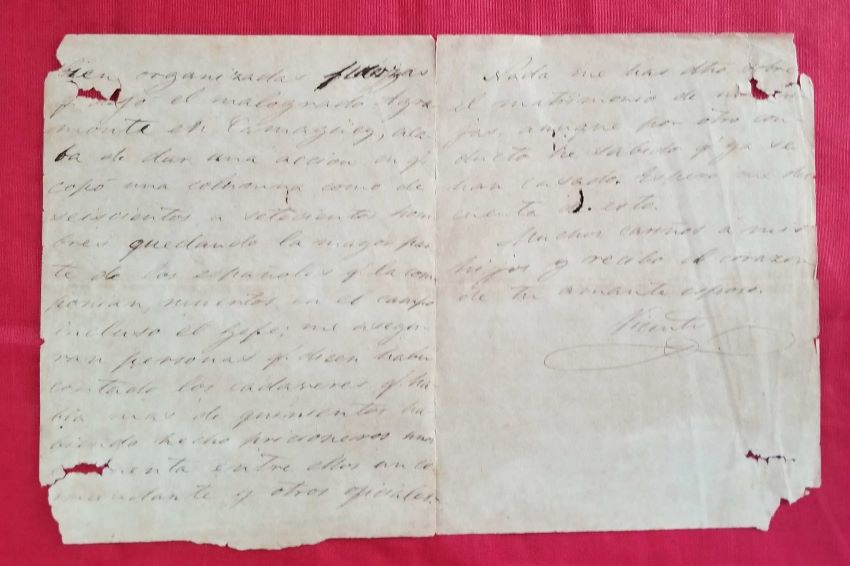 bien organizadas fuerzas
q. dejó el malogrado Agra
monte en Camagüey, aca
ba de dar una acción en q.
copó una columna como de
seiscientos a setecientos hom
bres quedando la mayor par
te de los españoles q. la com
ponían, muertos en el campo
incluso el Gefe; me asegu
ran personas q. dicen haber
contado los cadaveres, q. ha
bía mas de quinientos ha
ciendo hecho prisioneros unos
entre ellos un co
mandante y otros oficiales.
Nada me has dho sobre
el matrimonio de
jas, aunque por otro con
ducto he sabido q. ya se
han casado. Espero me des
cuenta de esto.
Muchos cariños á mis
hijos y recibe el corazon
de tu amante esposo.
Vicente